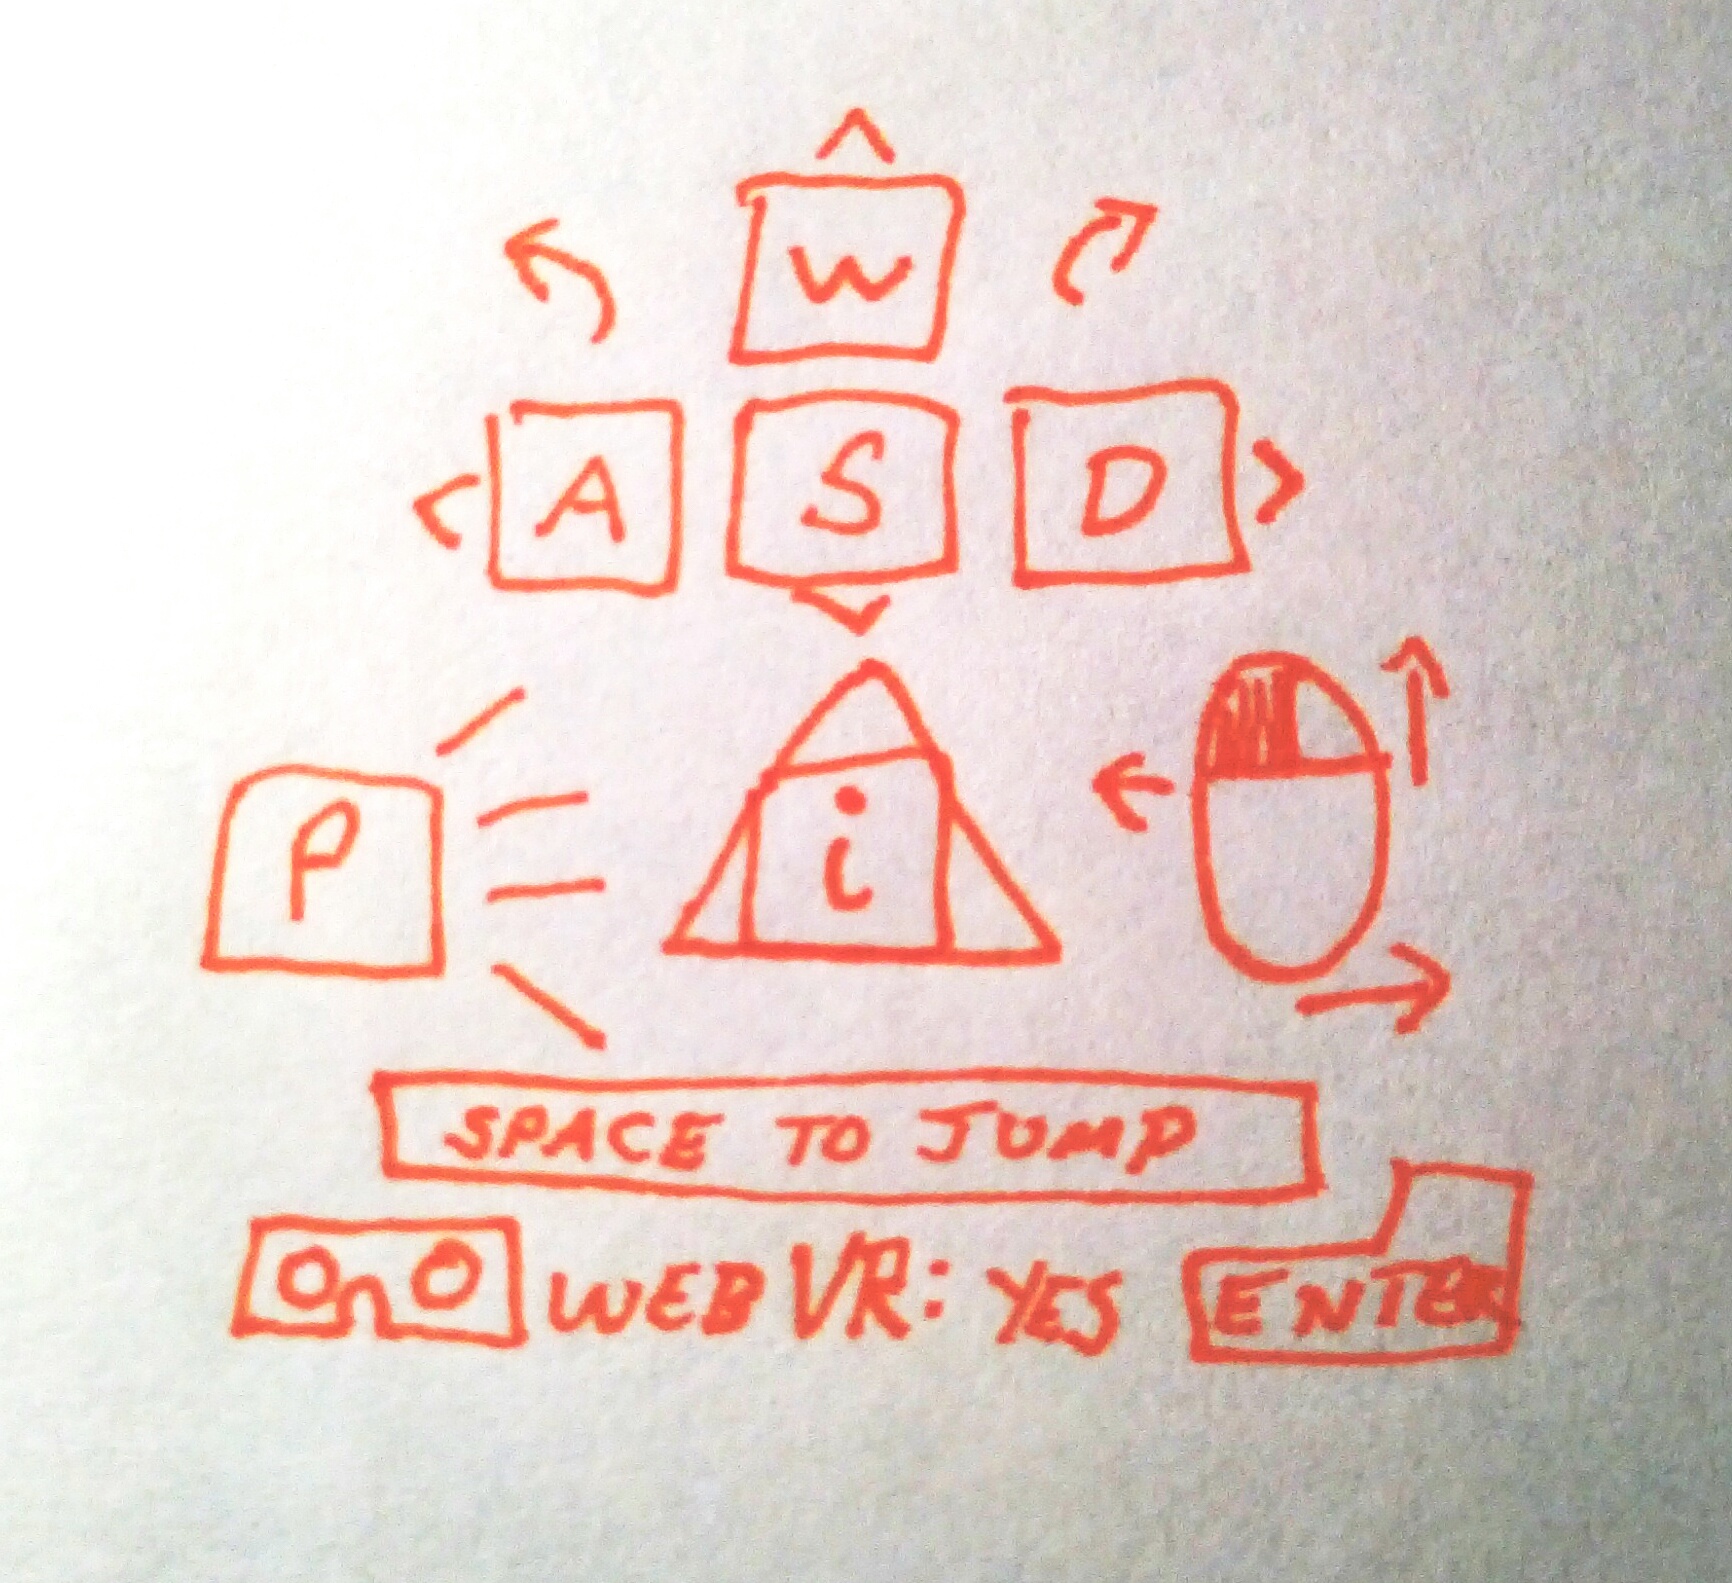 W
A S D
P i
SPACE TO JUMP
WEBVR: YES ENTER